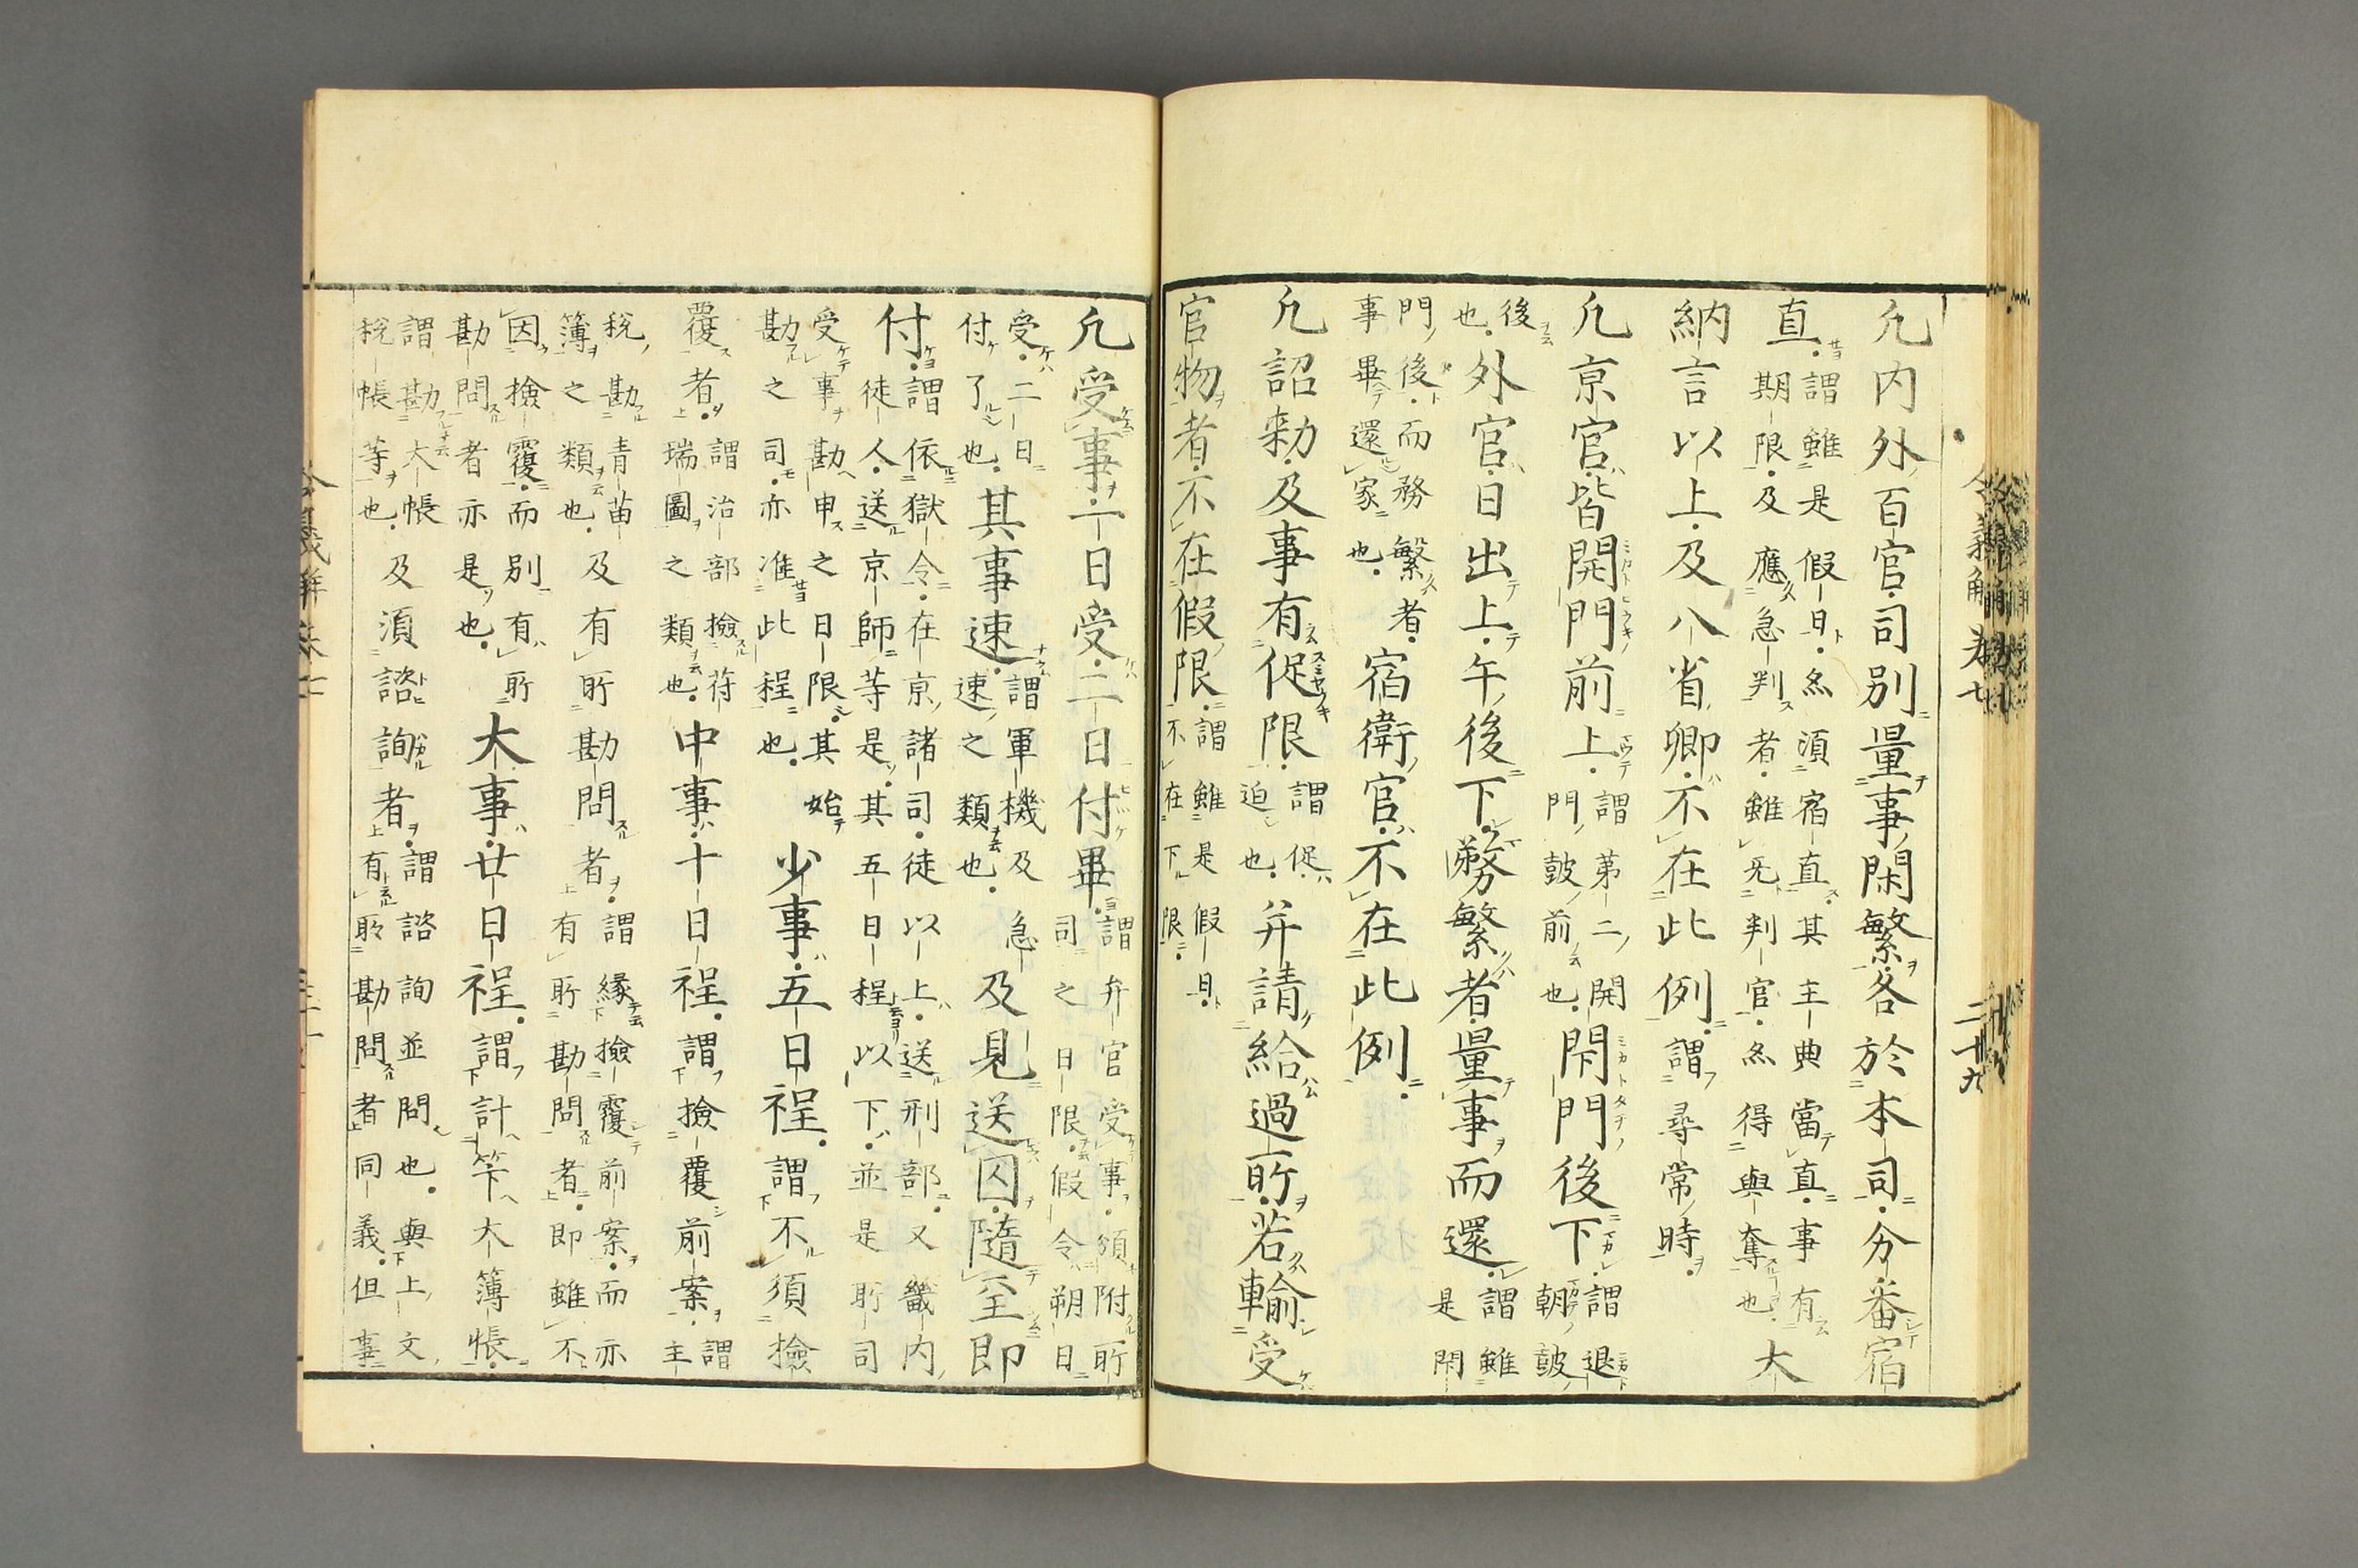 凢内外百官司別量事閑繁各於本司分番宿
直謂雖是假日尓須宿直其主典當直事有
期限及應急判者雖无判官尓得與奪也大
納言以上及八省卿不在此例謂尋常時
凢京官皆開門前上謂苐二開門皷前也閇門後下謂退朝皷
後也外官日出上午後下務繁者量事而還謂雖是閇
門後而務繁者事畢還家也宿衛官不在此例
凢詔勅及事有促限謂促迫也并請給過所若輸受
官物者不在假限謂雖是假日不在下限
凢受事一日受二日付畢謂弁官受事須附所司之日限假令朔日
受二日付了也其事速謂軍機急速之類也及見送囚隨至即
付謂依獄令在京諸司徒以上送刑部又畿内徒人送京師等是其五日程以下並是所司
受事勘申之日限其始勘之司亦准此程也少事五日程謂不須撿
覆者謂治部撿苻瑞圖之類也中事十日程謂撿覆前案謂主
税勘青苗簿之類也及有所勘問者謂縁撿覆前案而有所勘問者即雖不
因撿覆而別有所勘問者亦是也大事廿日程謂計竿大簿帳
謂勘大帳税帳等也及湏諮詢者謂諮詢並問也與上文有所勘問者同義但事
令義解巻七
二十九